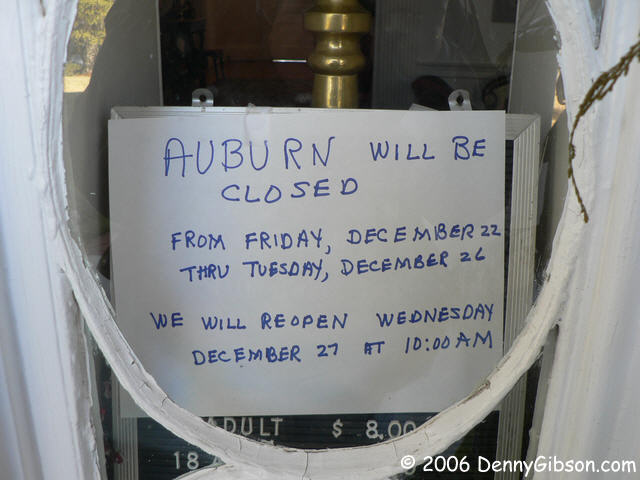 AUBURN WILL BE
CLOSED
FROM FRIDAY, DECEMBER 22
THRU TUESDAY, DECEMBER 26
WE WILL REOPEN WEDNESDAY
DECEMBER 27 AT 10:00 AM
ADULT $ 8.00
18
© 2006 DennyGibson.com